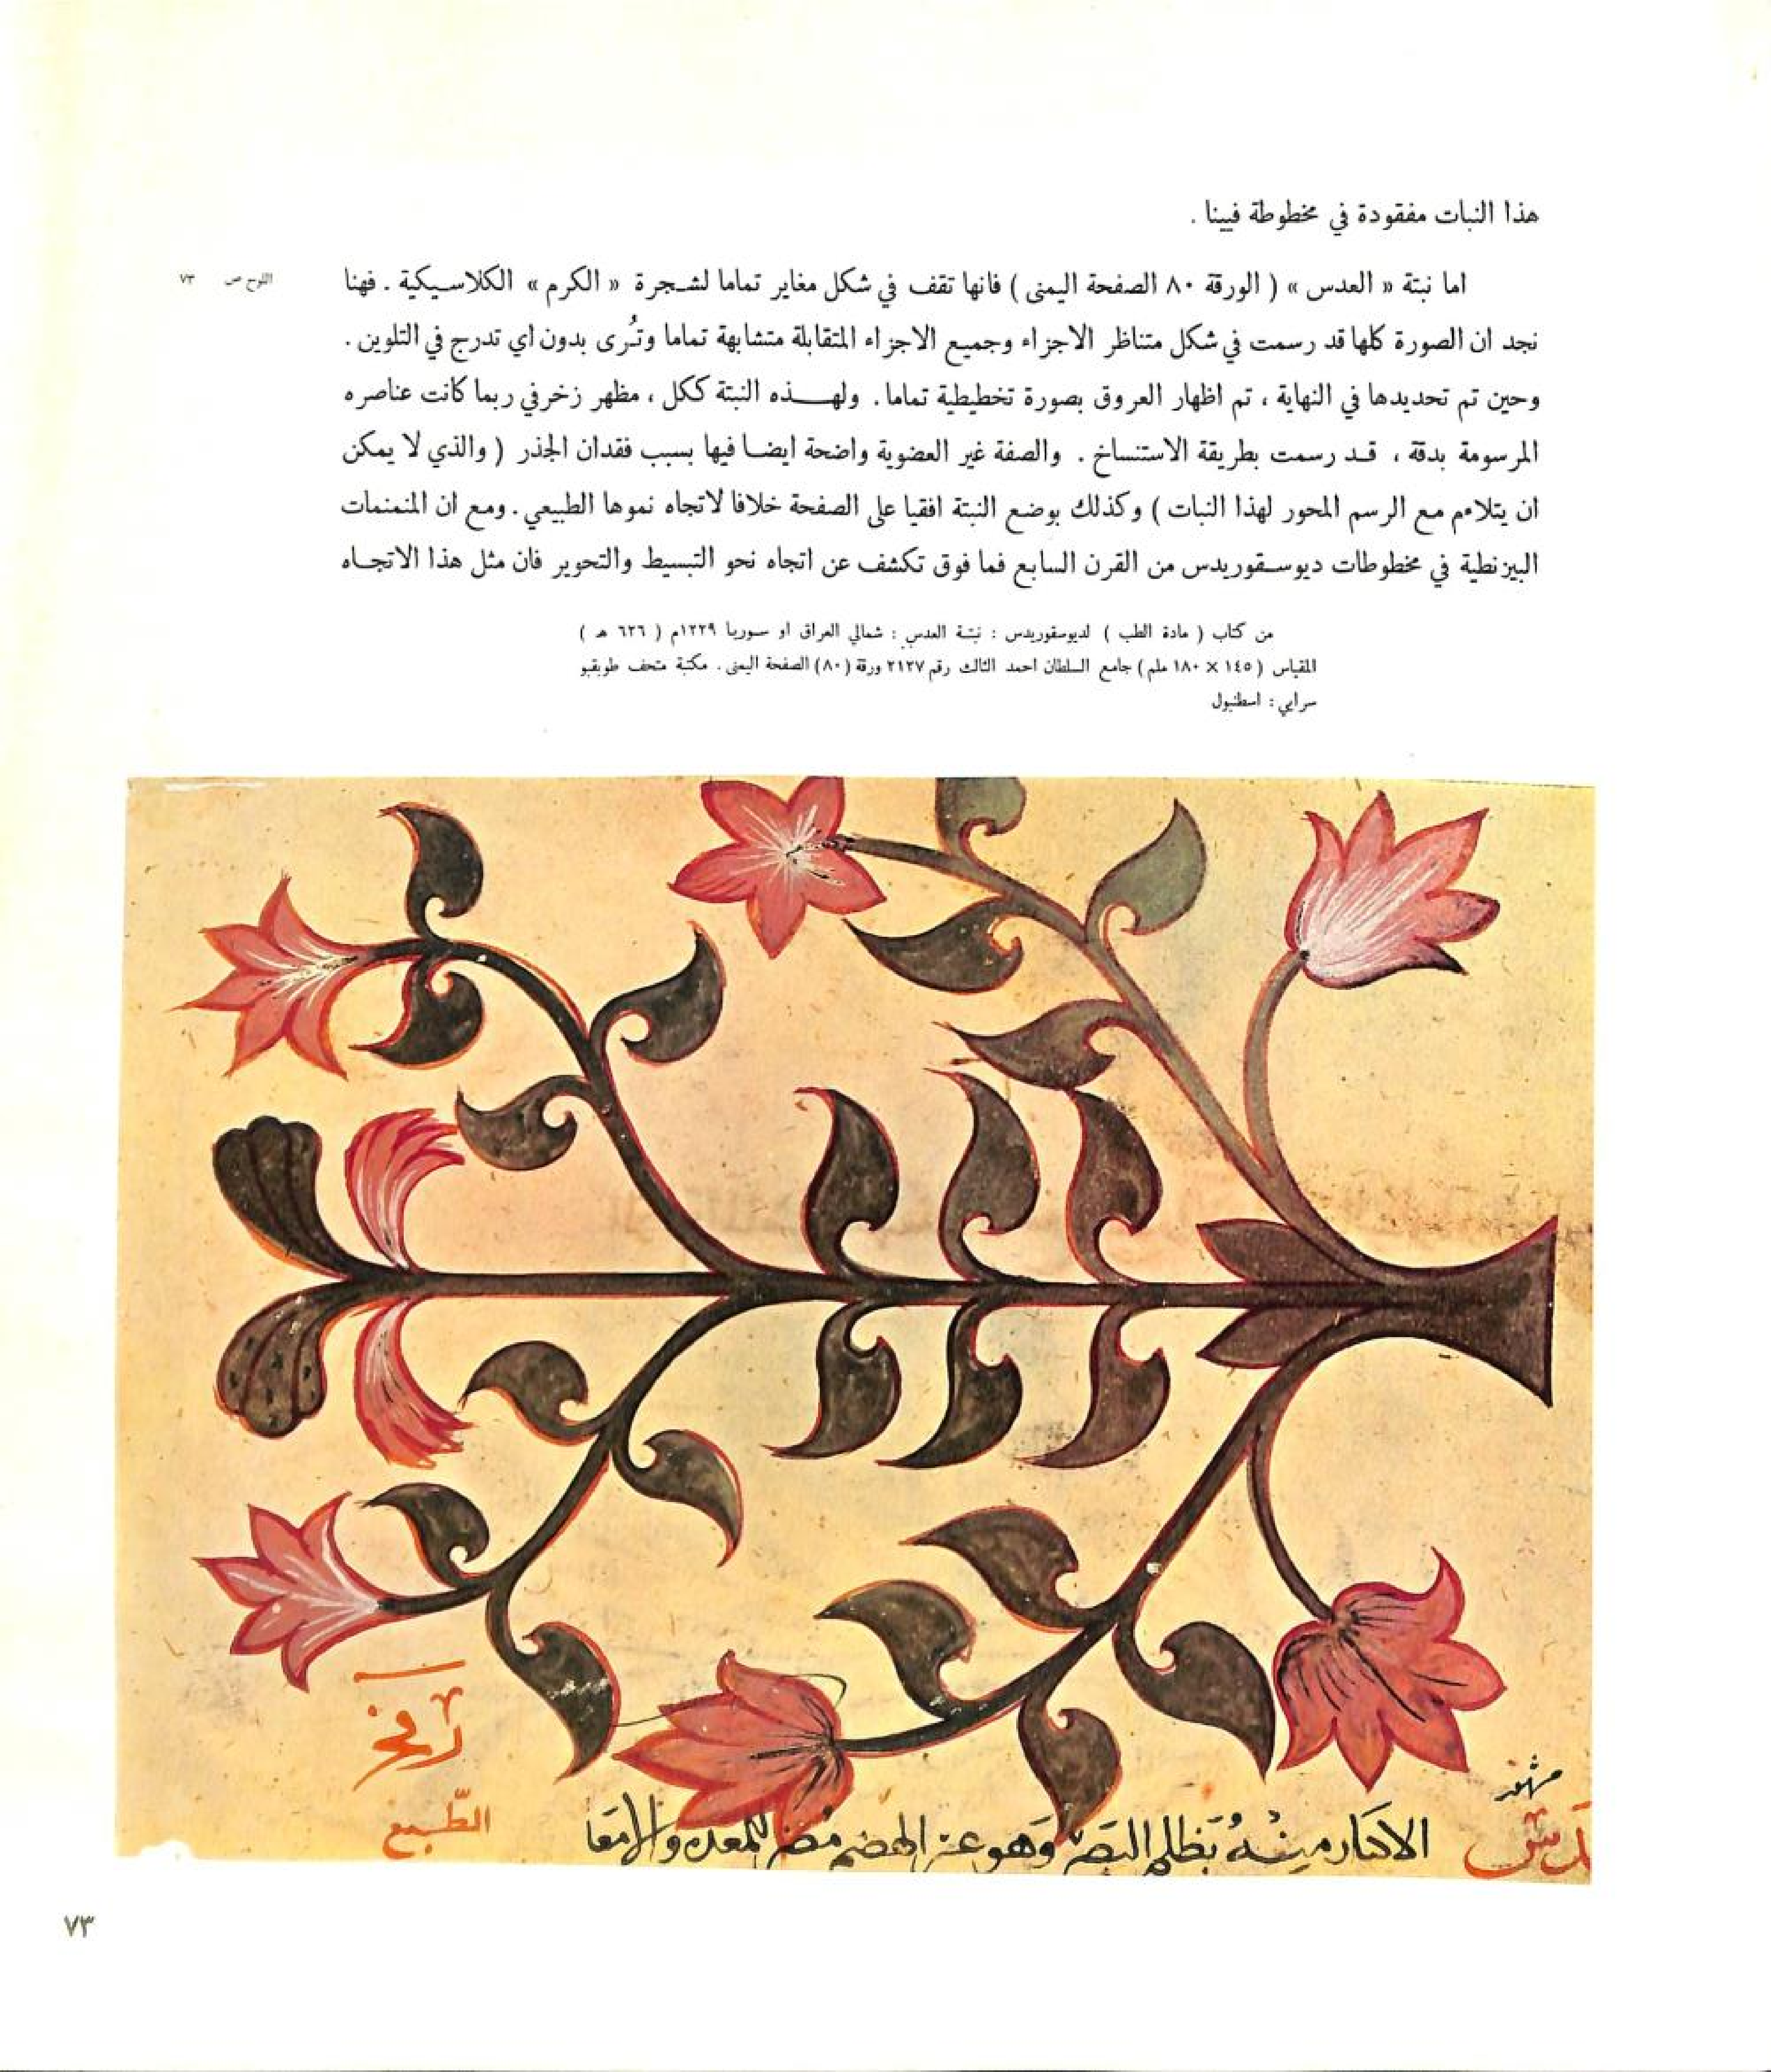 هذا النبات مفقودة في مخطوطة فيينا .
اما نبتة « العدس » ( الورقة ٨٠ الصفحة اليمنى ) فانها تقف في شكل مغاير تماما لشجرة « الكرم » الكلاسيكية . فهنا
اللوح ص ٧٣
نجد ان الصورة كلها قد رسمت في شكل متناظر الاجزاء وجميع الاجزاء المتقابلة متشابهة تماما وتُرى بدون اي تدرج في التلوين .
وحين تم تحديدها في النهاية ، تم اظهار العروق بصورة تخطيطية تماما . ولهذه النبتة ككل ، مظهر زخرفي ربما كانت عناصره
المرسومة بدقة ، قد رسمت بطريقة الاستنساخ . والصفة غير العضوية واضحة ايضا فيها بسبب فقدان الجذر ( والذي لا يمكن
ان يتلاءم مع الرسم المحور لهذا النبات ) وكذلك بوضع النبتة افقيا على الصفحة خلافا لاتجاه نموها الطبيعي . ومع ان المنمنمات
البيزنطية في مخطوطات ديوسقوريدس من القرن السابع فما فوق تكشف عن اتجاه نحو التبسيط والتحوير فان مثل هذا الاتجاه
من كتاب ( مادة الطب ) لديوسقوريدس : نبتة العدس : شمالي العراق او سوريا ١٢٢٩م ( ٦٢٦ هـ )
المقياس ( ١٤٥ × ١٨٠ ملم ) جامع السلطان احمد الثالث رقم ٢١٢٧ ورقة ( ٨٠ ) الصفحة اليمنى . مكتبة متحف طوبقبو
سرايي : اسطنبول
مشهور
الاكثار منه يظلم البصر وهو عسر الهضم مضر للمعدة والامعا
٧٣